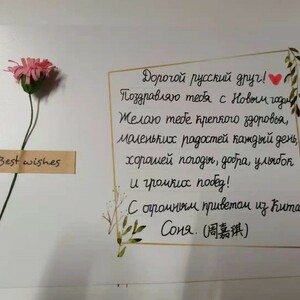 Дорогой русский друг!
Поздравляю тебя с Новым годом
Желаю тебе крепкого здоровья,
маленьких радостей каждый день,
хорошей погоды, добра, улыбок
и громких побед!
С огромным приветом из Китая
Соня. (周嘉琪)
Best wishes